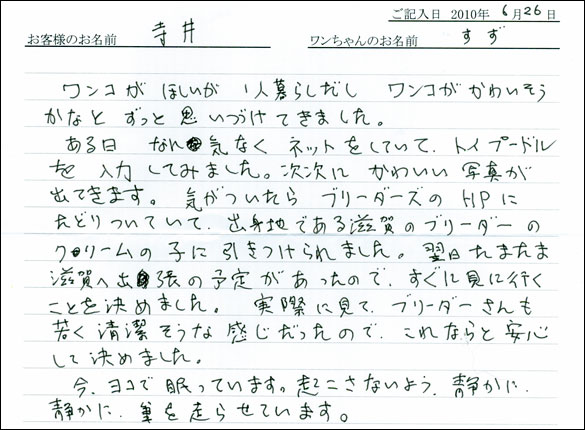 ご記入日 2010年 6月26日
お客様のお名前 寺井 ワンちゃんのお名前 すず
ワンコが ほしいが 1人暮らしだし ワンコが かわいそう
かなと ずっと 思いつづけてきました。
ある日 なん気なく ネットをしていて、トイプードル
を 入力してみました。次次に かわいい 写真が
出てきます。気がついたら ブリーダーズの HPに
たどりついていて、出身地である滋賀のブリーダーの
クリームの子に引きつけられました。翌日たまたま
滋賀へ出張の予定があったので、すぐに見に行く
ことを決めました。 実際に見て、ブリーダーさんも
若く清潔そうな感じだったので、これならと安心
して決めました。
今、ヨコで眠っています。起こさないよう、静かに、
静かに、筆を走らせています。